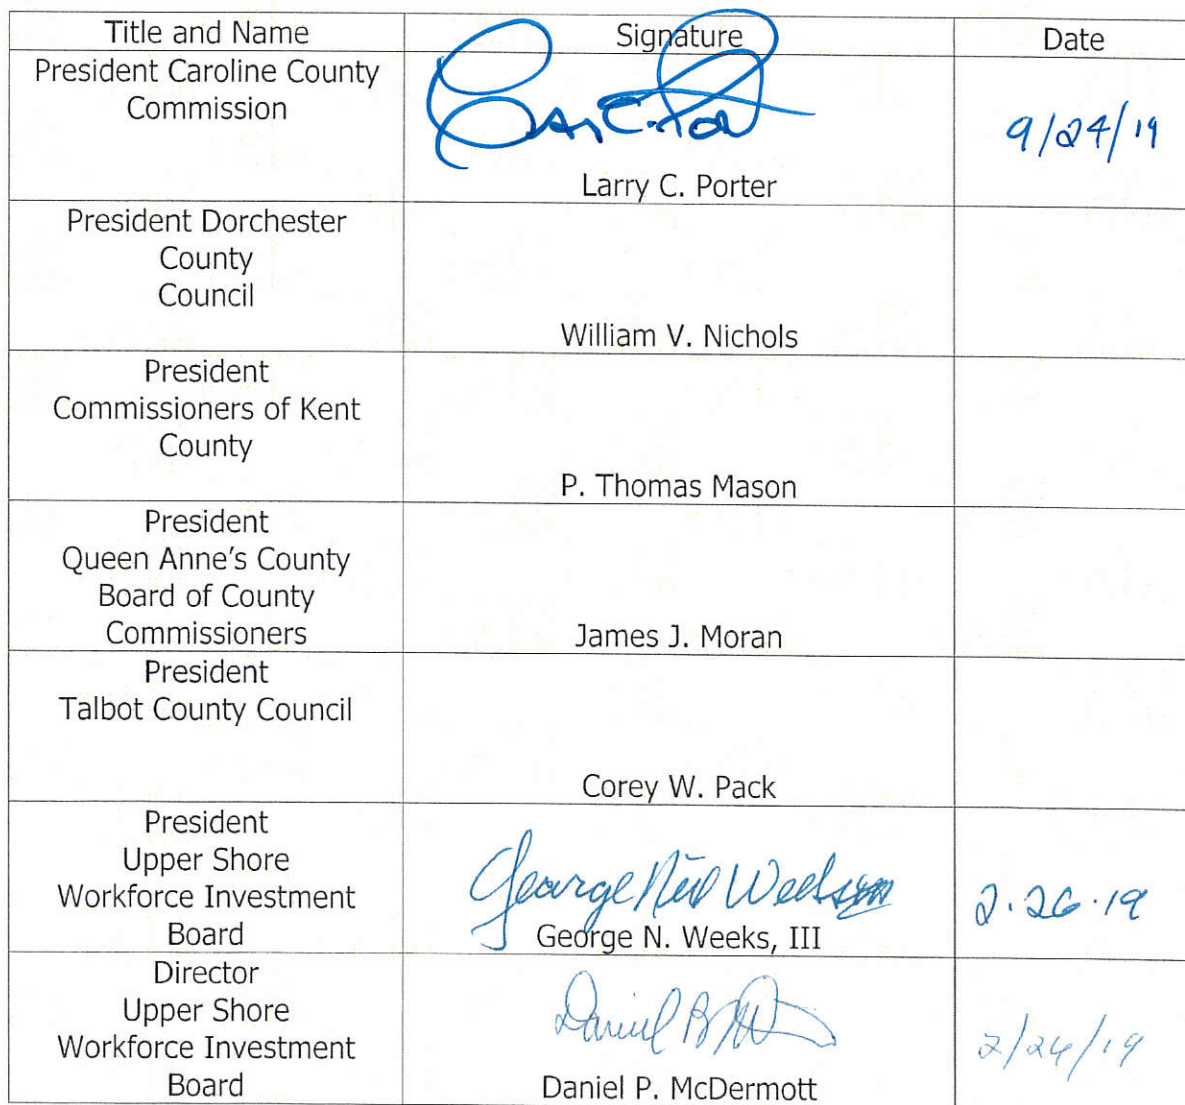 Title and Name Signature Date
President Caroline County
Commission
9/24/19
Larry C. Porter
President Dorchester
County
Council
William V. Nichols
President
Commissioners of Kent
County
P. Thomas Mason
President
Queen Anne's County
Board of County
Commissioners
James J. Moran
President
Talbot County Council
Corey W. Pack
President
Upper Shore
Workforce Investment
Board
George
2.26.19
George N. Weeks, III
Director
Upper Shore
Workforce Investment
Board
Daniel
Daniel P. McDermott